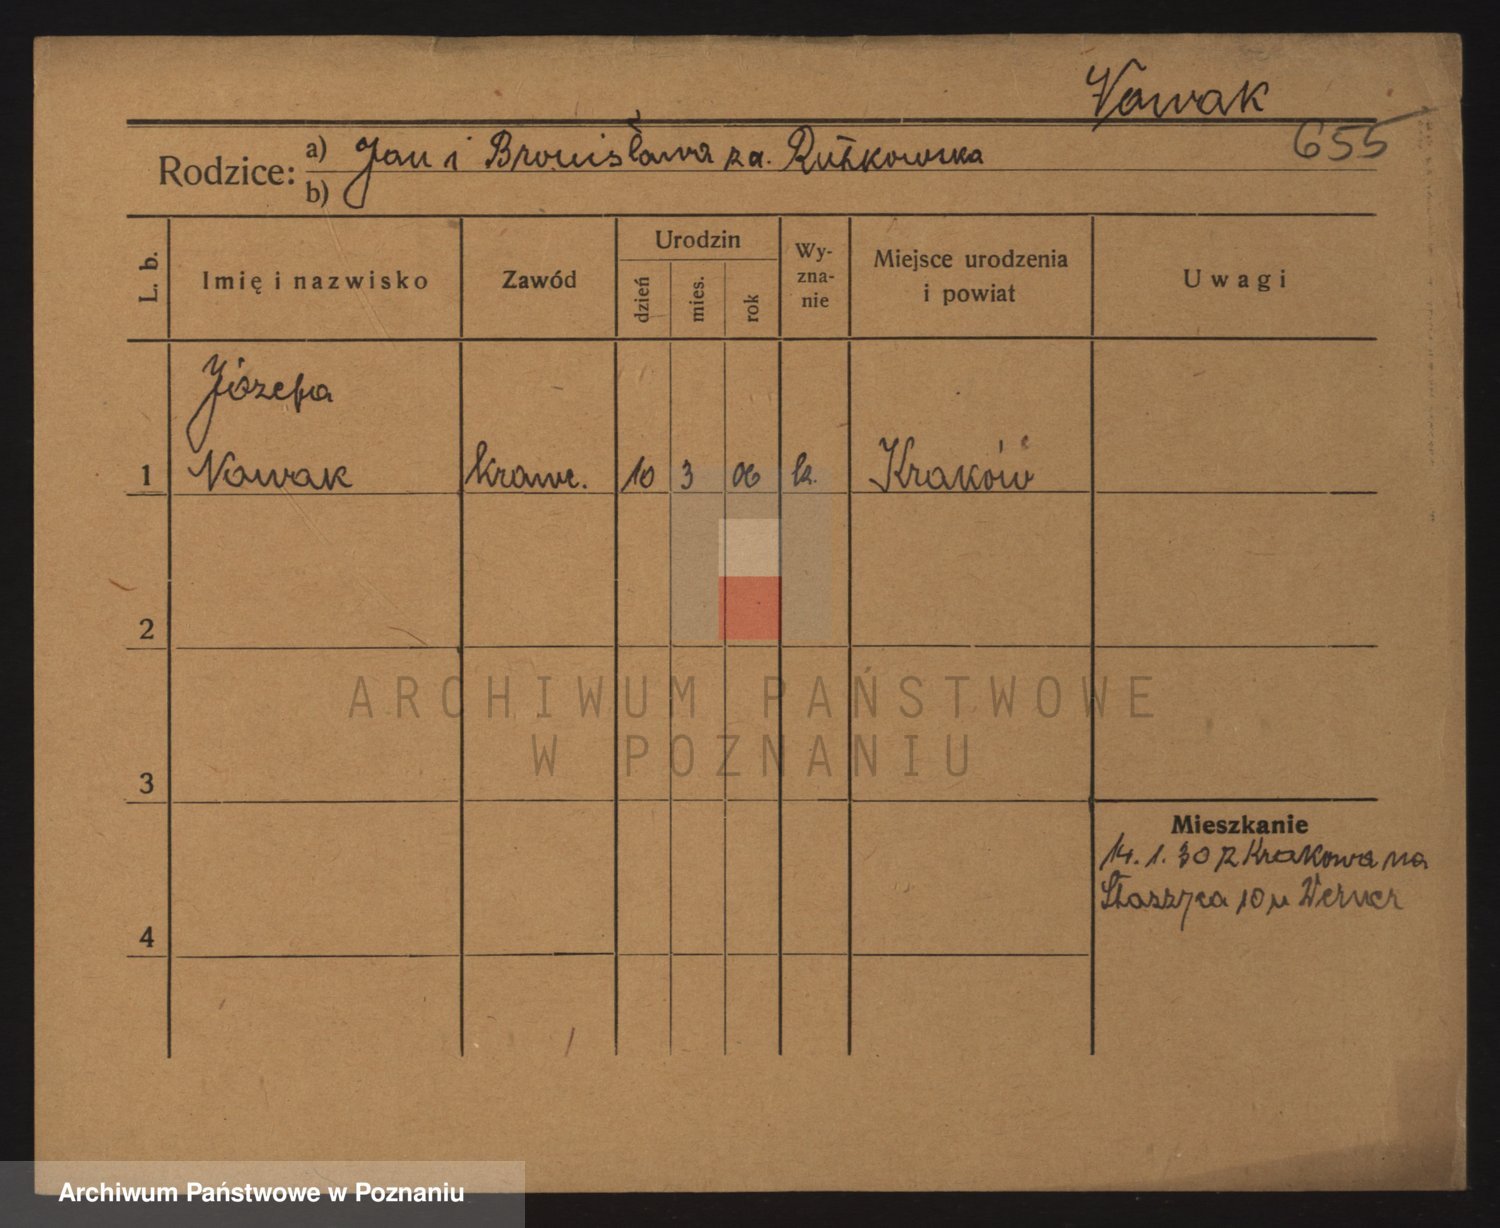 Nowak
655
Rodzice: a) Jan i Bronisława za. Rutkowska
b)
L. b.
Imię i nazwisko
Zawód
Urodzin
dzień
mies.
rok
Wy-
zna-
nie
Miejsce urodzenia
i powiat
Uwagi
Józefa
1 Nowak krawc. 10 3 06 k. Kraków
2
3
4
Mieszkanie
14. 1. 30 z Krakowa na
Staszyca 10 u Werner
ARCHIWUM PAŃSTWOWE
W POZNANIU
Archiwum Państwowe w Poznaniu